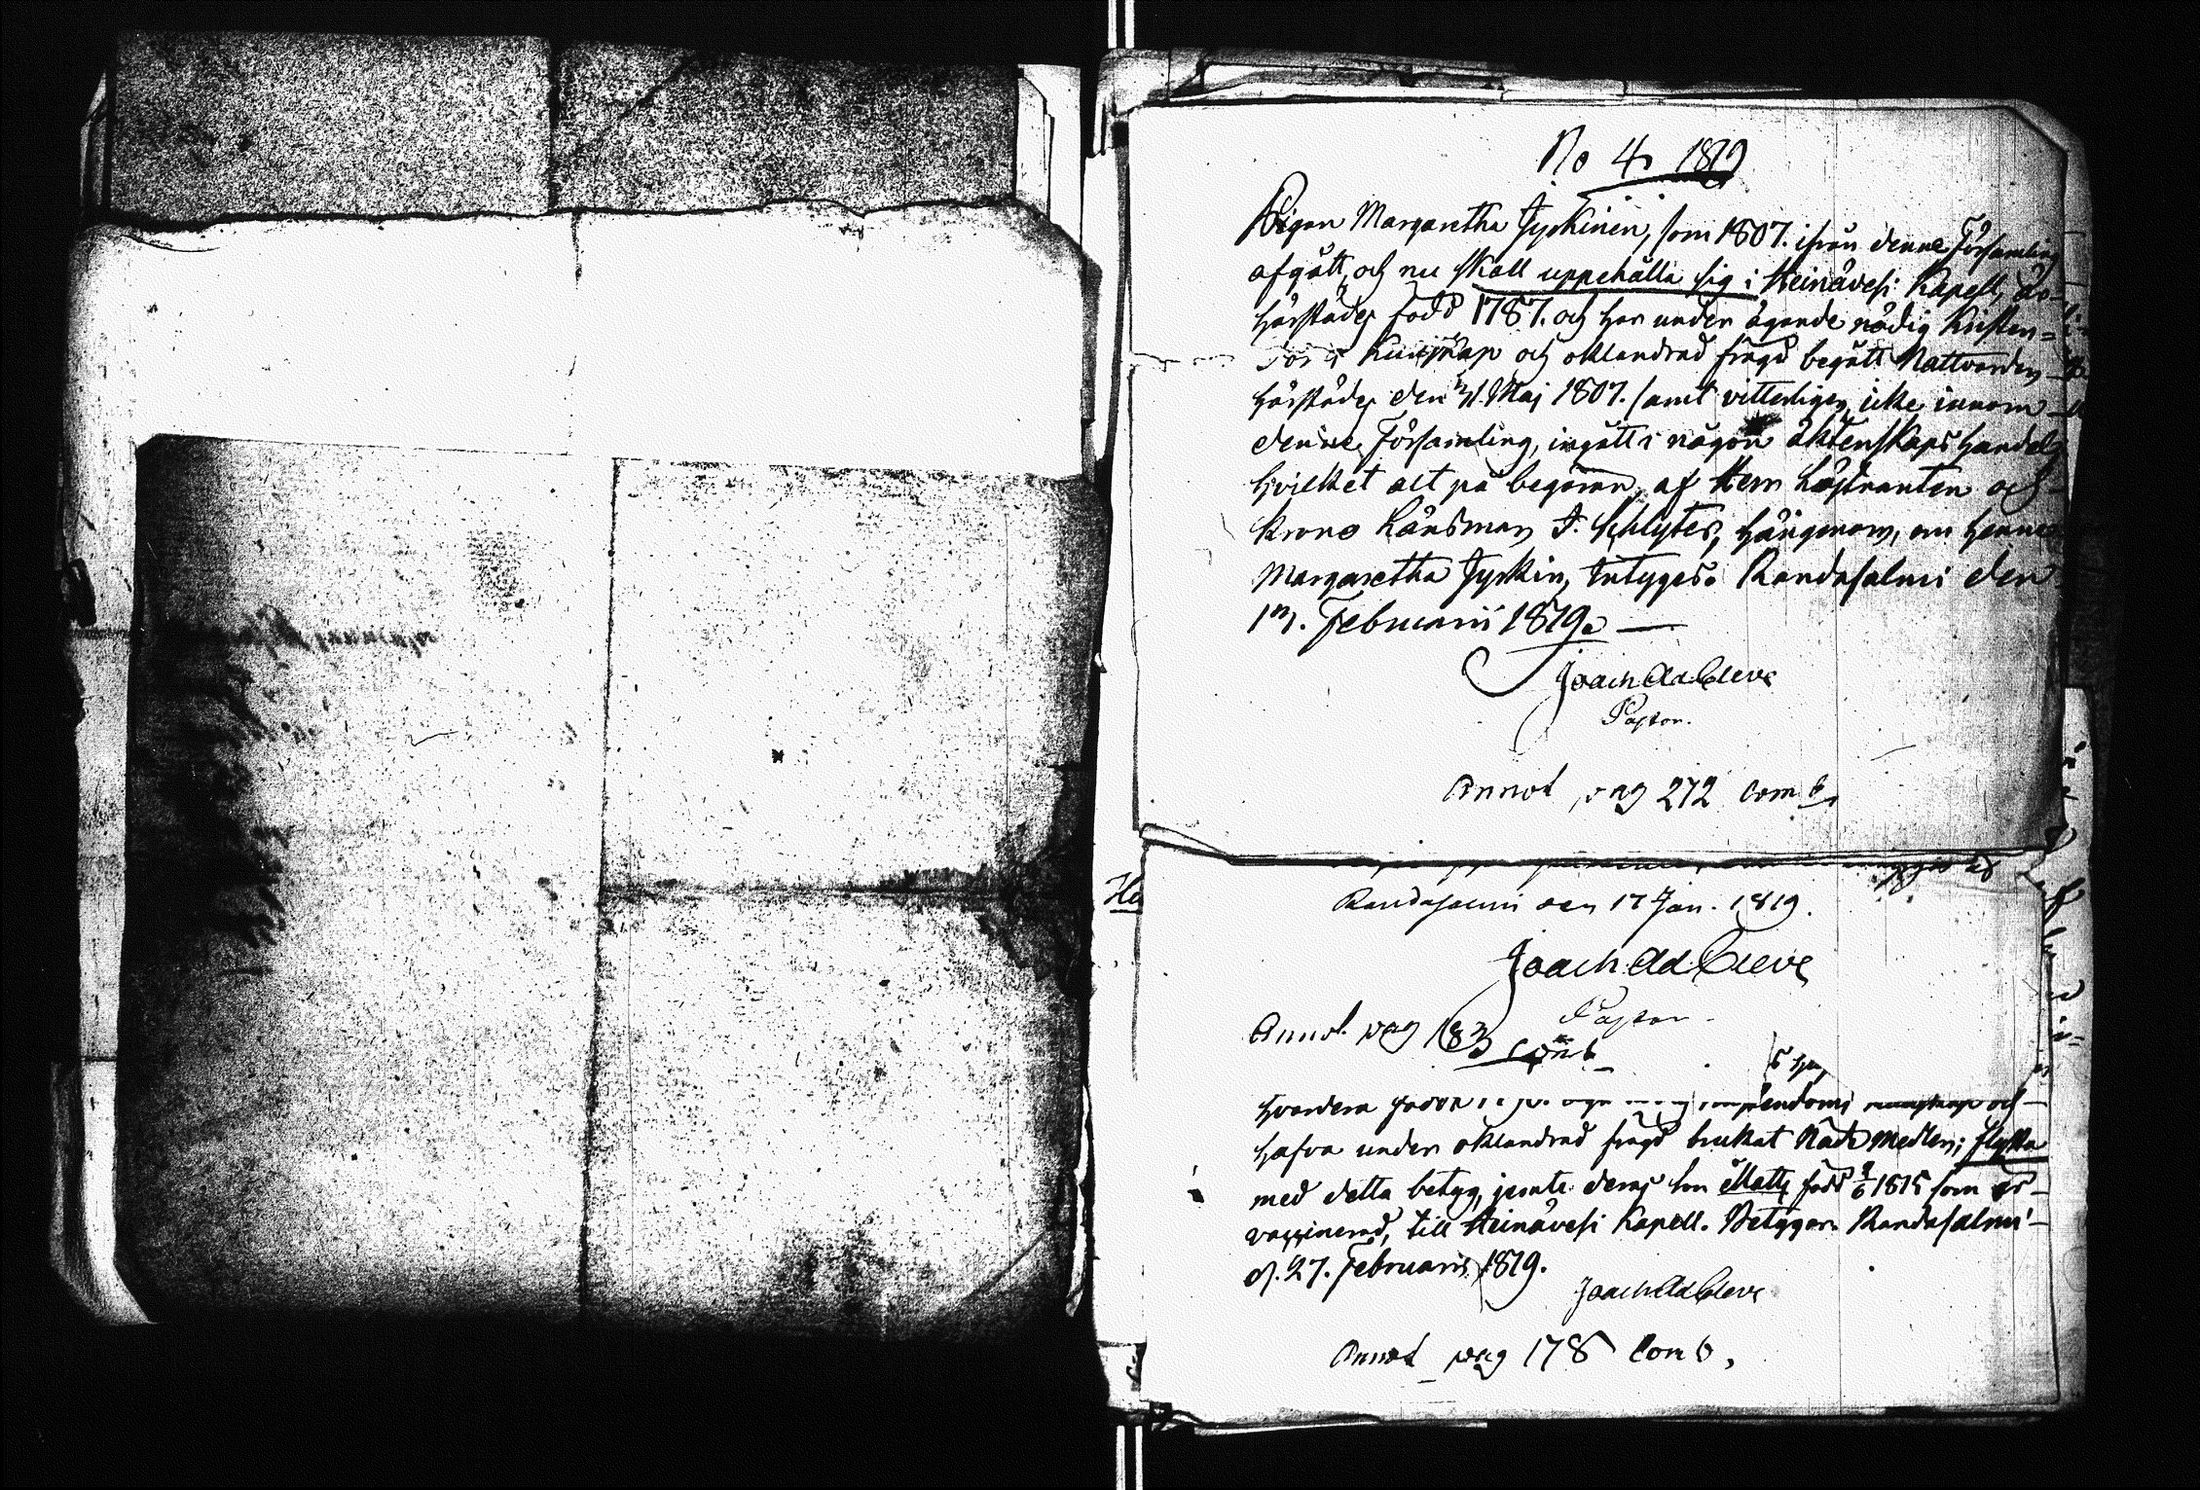 No 4, 1819
Pigan Margaretha Jyskinen, som 1807. ifrån denne Församling
afgått, och nu skall uppehålla sig i Heinävesi Kapell, är
härstädes född 1787. och har under ägande nödig Kristen=
Kunskap och oklandrad frägd begått Nattvarden
härstädes den Maj 1807. samt vitterligen icke innom
denne Församling, ingått i någon äktenskaps handel,
hvilket alt på begäran af Herr och
Krono Länsman J. Schlyter, härigenom, om henne
Margaretha Jyskin, intygas. Randasalmi den
1. Februarii 1819.
Joach Ad Cleve
Pastor.
Annot pag 272 Comb.
Ha
Randasalmi den 17 Jan. 1819.
Joach Ad Cleve
Pastor.
Annot. pag 183 Comb
hvardera och
hafva under oklandrad frägd brukat Nåde medlen; flytta
med detta betyg, jemte deras son Matts född 1815 som är
vaccinerad, till Heinävesi Kapell. Betygar. Randasalmi
d. 27. Februarii 1819.
Joach Ad Cleve
Annot pag 178 Comb.